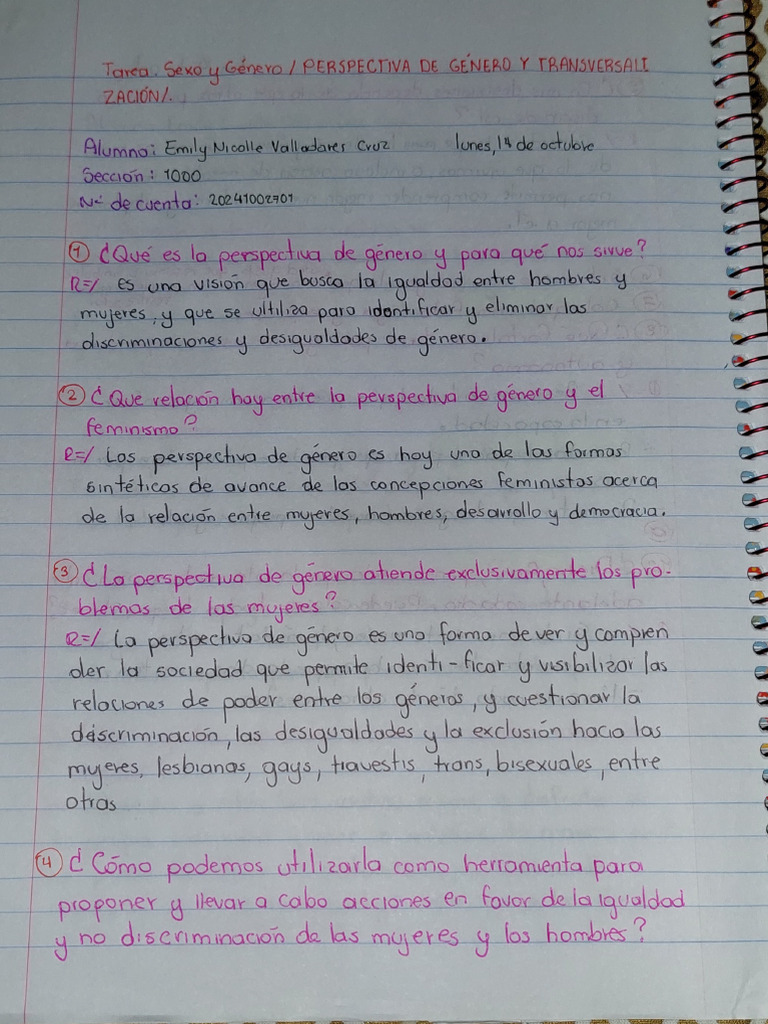 Tarea. Sexo y Género / PERSPECTIVA DE GÉNERO Y TRANSVERSALI
ZACIÓN/.
Alumna: Emily Nicolle Valladares Cruz lunes, 14 de octubre
Sección: 1000
Nº de cuenta: 20241002701
1 ¿Qué es la perspectiva de género y para qué nos sirve?
R=/ es una visión que busca la igualdad entre hombres y
mujeres, y que se ultiliza para identificar y eliminar las
discriminaciones y desigualdades de género.
2 ¿Que relación hay entre la perspectiva de género y el
feminismo?
R=/ Las perspectiva de género es hoy una de las formas
sintéticas de avance de las concepciones feministas acerca
de la relación entre mujeres, hombres, desarollo y democracia.
3 ¿La perspectiva de género atiende exclusivamente los pro-
blemas de las mujeres?
R=/ La perspectiva de género es una forma de ver y compren
der la sociedad que permite identi-ficar y visibilizar las
relaciones de poder entre los géneros, y cuestionar la
discriminación, las desigualdades y la exclusión hacia las
mujeres, lesbianas, gays, travestis, trans, bisexuales, entre
otras
4 ¿Cómo podemos utilizarla como herramienta para
proponer y llevar a cabo acciones en favor de la igualdad
y no discriminación de las mujeres y los hombres?